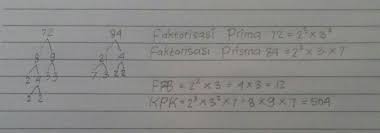 72 84
8 9 21 4
2 4 3 3 7 3 2 2
2 2
Faktorisasi Prima 72 = 2³ × 3²
Faktorisasi Prisma 84 = 2² × 3 × 7
FPB = 2² × 3 = 4 × 3 = 12
KPK = 2³ × 3² × 7 = 8 × 9 × 7 = 504